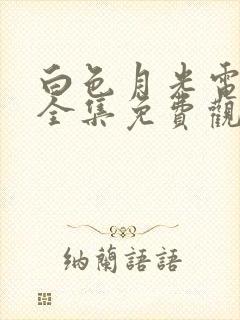 白色月光電
全集免費觀
納蘭語語